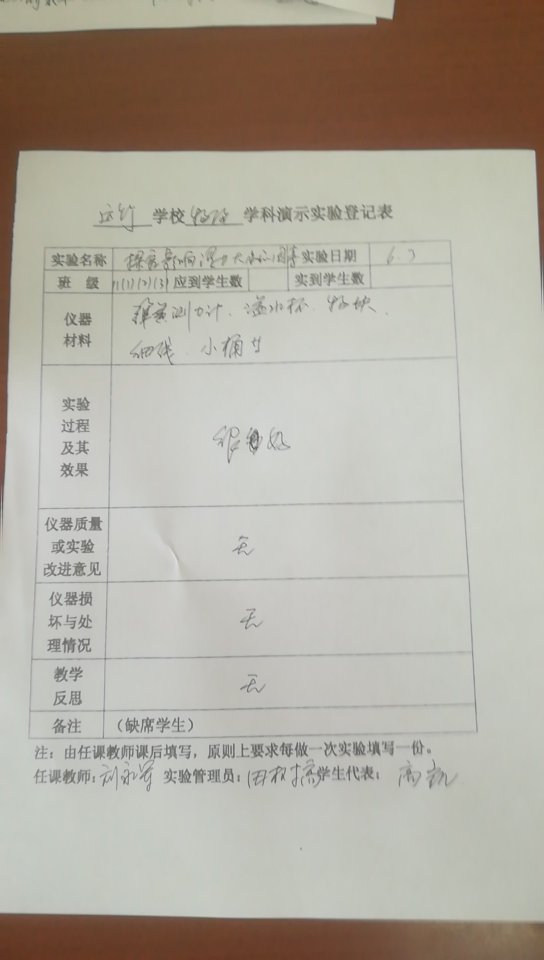 学校 物理 学科演示实验登记表
实验名称 探究影响浮力大小的因素 实验日期 6.3
班 级 (1)(2)(3) 应到学生数 实到学生数
仪器材料 弹簧测力计、溢水杯、物块、
细线、小桶
实验过程及其效果 很好
仪器质量或实验改进意见 无
仪器损坏与处理情况 无
教学反思 无
备注 （缺席学生）
注：由任课教师课后填写，原则上要求每做一次实验填写一份。
任课教师： 实验管理员： 学生代表：高凯